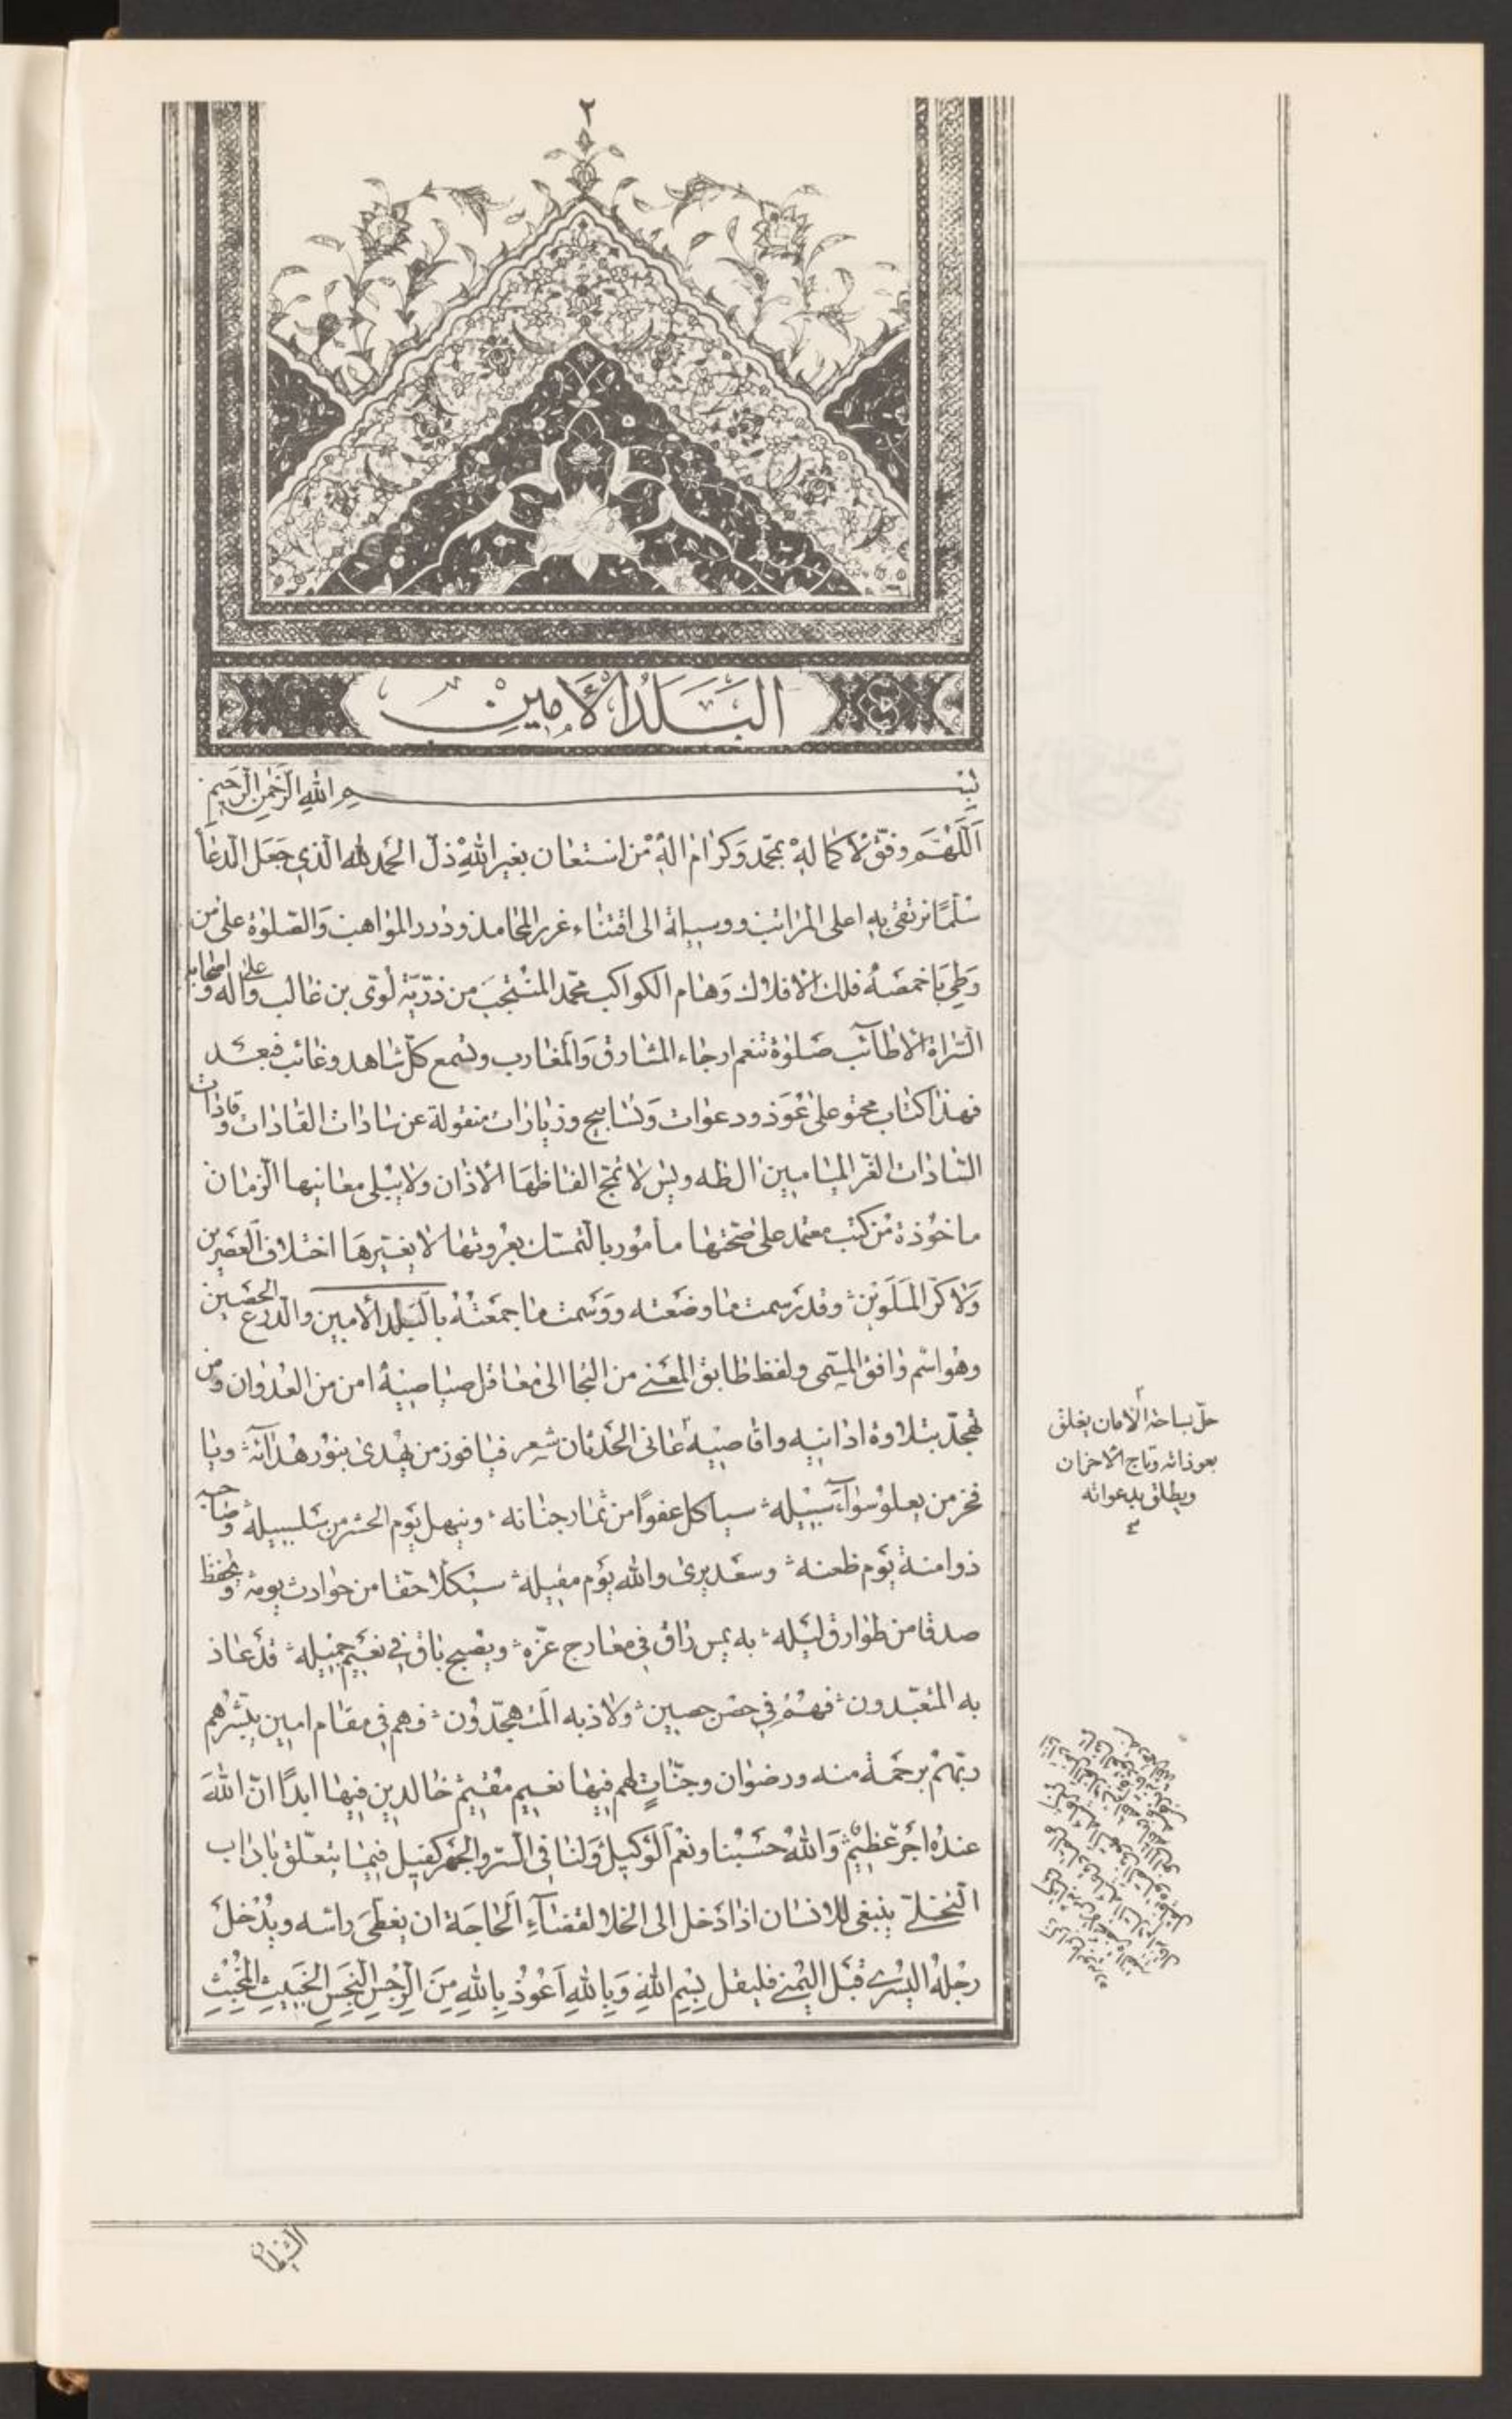 ٢
البَلَدُ الأَمِين
بِسْمِ اللهِ الرَّحْمٰنِ الرَّحِيمِ
اَللّٰهُمَّ وفّق لاكماله بمحمّد وَكرام اله مَن استعان بغير اللهِ ذلّ الحمد لله الّذي جَعَل الدعاءَ
سُلّمًا نرتقي به اعلى المراتب ووسيلة الى اقتناء غرر المحامد ودرر المواهب وَالصّلوٰة على من
وَطِيَ بِاَخمَصَهُ فلك الافلاك وَهام الكواكب محمّد المنُتجَب من ذرّيّة لُوَيّ بن غالب وَ اله وَعلى اصحابه
السّراة الاطآئب صَلوٰة تنعم ارجاء المشارق وَالمغارب وتسمع كلّ شاهد وغائب فبعَد
فهذا كتاب محتو على عُوَذ ودعوات وَتسابيح وزيارات منقولة عن سادات القادات وَقادات
السّادات الغر الميامين ال طه ويس لا تمجّ الفاظهَا الاذان ولا يبُلي معانيها الزمان
ماخُوذة مُن كتب معتمد على صّحتها مأمور بالتمسّك بعُروتها لا يغيّرهَا اختلاف العَصرين
وَلا كرّ المَلَوَين وقد رسمت ما وضَعته ووَسمت ما جمَعتُهُ بالبَلد الامين والدرع الحَصين
وهو اسْم وافق المسّمى ولفظ طابق المعَنى من التجا الى معاقل صياصيه امن من العدوان وَمن
تهجّد بتلاوة ادانيه واقاصيه عانى الحَدثان شعر فيا فوز من يهُدى بنور هداته ويا
فخر من يعلو سَوآءَ سَبيله سياكل عفوًا من ثمار جنانه وينهل يَوم الحشر من سَلسبيله وَصاحبه
ذو امنة يَوم ظعنه وسعَد يرى والله يَوم مقيله سيُكلا حقّا من حوادث يومه وَيحفظ
صدقا من طوارق لَيله به يمس راق في معارج عّزه ويصُبح باق في نعَيم جميله قد عاذ
به المتعبّدون فهُمْ في حصن حصين ولاذ به المتهجّدون فهم في مقام امين يبشّرهم
ربّهم برحمَة منه ورضوان وجنّاتٍ لهم فيها نعيم مُقيم خالدين فيها ابدًا انّ اللهَ
عندُه اجَرٌ عَظيمٌ وَاللهُ حَسْبُنا ونعْم الوَكيل وَلنا في السّر والجهر كفيل فيما يتعلّق باداب
التّخلّي ينبغي للانسان اذا دَخل الى الخلا لقضآءِ الحاجَة ان يغطّي رأسه ويُدْخل
رِجْلهُ اليُسْرى قَبل اليُمْنى فليقل بِسْمِ اللهِ وَبِاللهِ اَعُوْذُ بِاللهِ مِنَ الرِّجْسِ النَّجِسِ الخَبيثِ المُخْبِثِ
حلّ بساحة الامان يغلق
بعوذاته رتاج الاحزان
ويطلق بدعواته
الشيطان